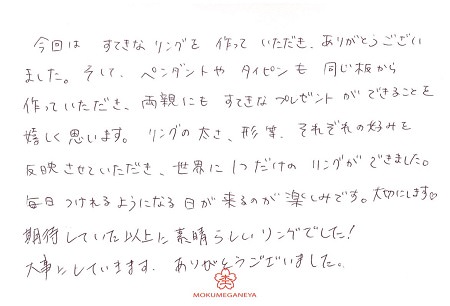 今回は すてきなリングを 作って いただき、ありがとうござい
ました。そして、ペンダントや タイピンも 同じ板から
作っていただき、両親にも すてきな プレゼント ができることを
嬉しく思います。リングの太さ、形等、それぞれの好みを
反映させていただき、世界に1つだけの リングができました。
毎日つけれるようになる日が来るのが楽しみです。大切にします♡
期待していた以上に素晴らしいリングでした!
大事にしていきます。ありがとうございました。
MOKUMEGANEYA